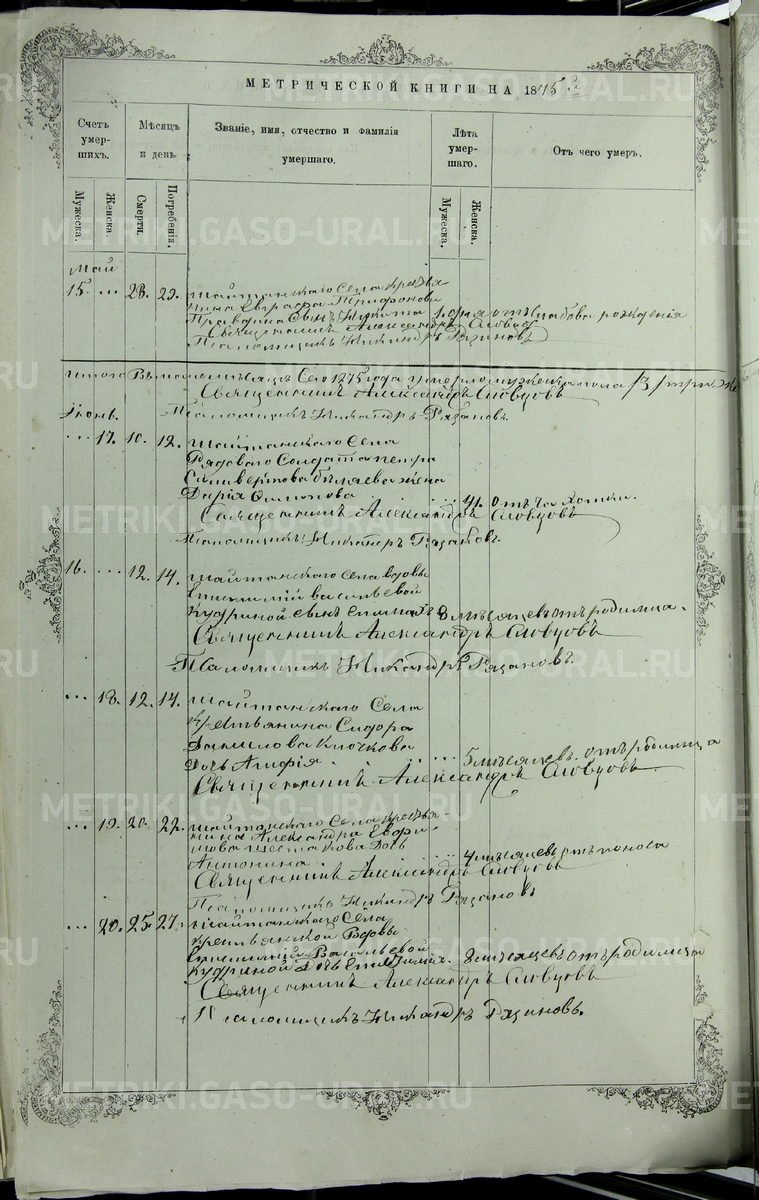 МЕТРИЧЕСКОЙ КНИГИ НА 1875
Счетъ умерших. Мѣсяцъ и день. Званіе, имя, отчество и фамилія умершаго. Лѣта умершаго. Отъ чего умеръ.
Мужеска. Женска. Смерти. Погребенія. Мужеска. Женска.
Май
15. ... 28. 29. Шайтанскаго Села Кресть
янина Трифонова
сынъ Никита отъ слабова рожденія
Священникъ Александръ Словцовъ
Псаломщикъ Никандръ Рязановъ
Итого въ маѣ мѣсяцѣ Сего 1875 года умерло мужеска пола /3/ три
Священникъ Александръ Словцовъ
Іюнь. Псаломщикъ Никандръ Рязановъ.
... 17. 10. 12. Шайтанскаго Села
Рядоваго Солдата Петра
Селивертова Бѣляева жена
Дарія ... 41. отъ чахотки.
Священникъ Александръ Словцовъ
Псаломщикъ Никандръ Рязановъ.
16. ... 12. 14. Шайтанскаго Села вдовы
Васильевой
Кудриной сынъ 8 мѣсяцевъ отъ родимца.
Священникъ Александръ Словцовъ
Псаломщикъ Никандръ Рязановъ.
... 18. 12. 14. Шайтанскаго Села
Крестьянина Сидора
Данилова Клочкова
Дочь Агафія ... 5 мѣсяцевъ. отъ родимца
Священникъ Александръ Словцовъ.
... 19. 20. 22. Шайтанскаго Села Крестья
нина Александра
Шестакова Дочь
Антонина. ... 4 мѣсяцевъ отъ поноса
Священникъ Александръ Словцовъ
Псаломщикъ Никандръ Рязановъ
... 20. 25. 27. Шайтанскаго Села
крестьянской Вдовы
Васильевой
Кудриной Дочь 8 мѣсяцевъ отъ родимца
Священникъ Александръ Словцовъ
Псаломщикъ Никандръ Рязановъ.
METRIKI.GASO-URAL.RU